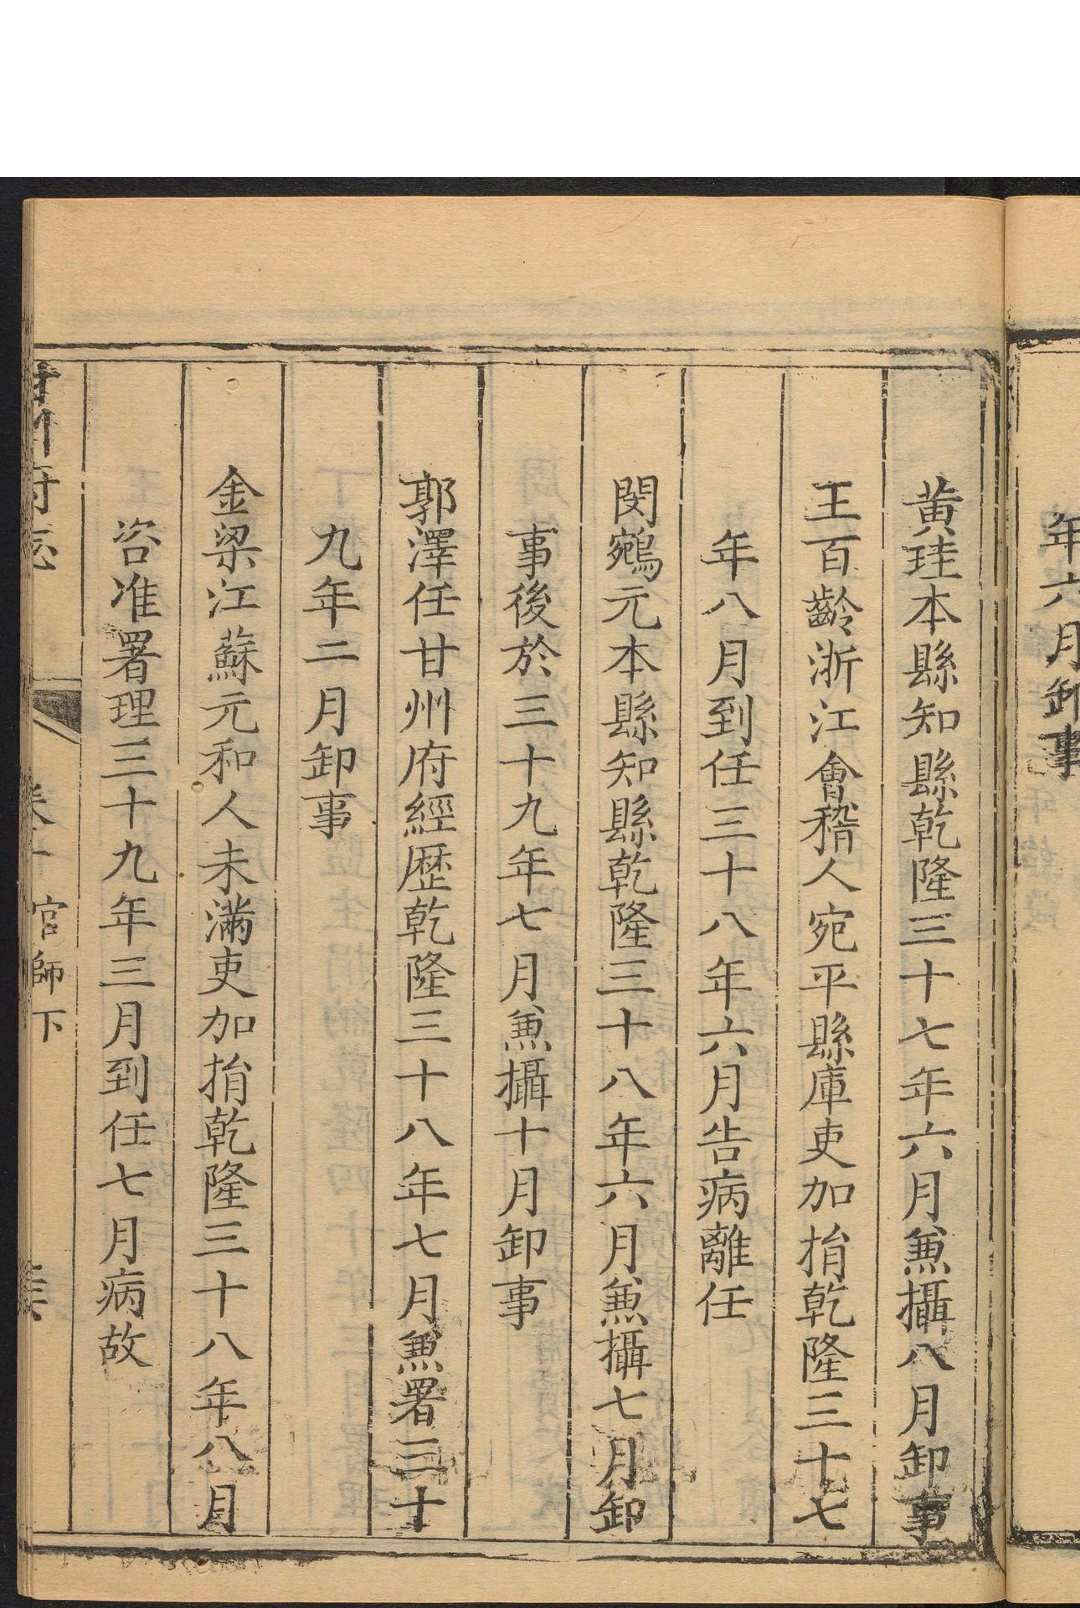 年六月卸事
黃珪本縣知縣乾隆三十七年六月兼攝八月卸事
王百齡浙江會稽人宛平縣庫吏加捐乾隆三十七
年八月到任三十八年六月告病離任
閔鵷元本縣知縣乾隆三十八年六月兼攝七月卸
事後於三十九年七月兼攝十月卸事
郭澤任甘州府經歷乾隆三十八年七月兼署三十
九年二月卸事
金梁江蘇元和人未滿吏加捐乾隆三十八年八月
咨准署理三十九年三月到任七月病故
甘州府志 卷十 官師下